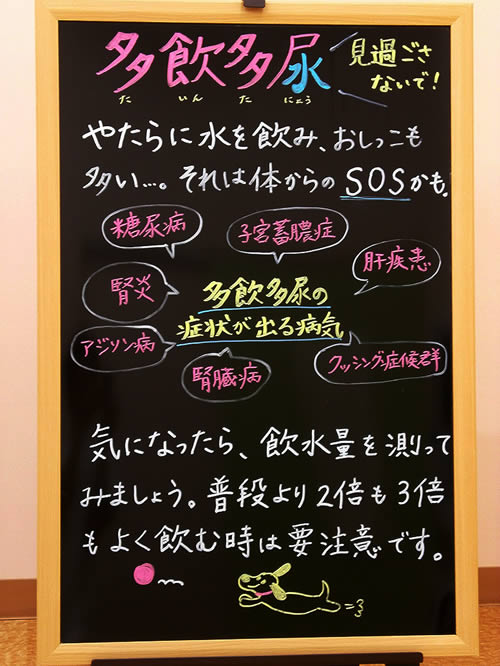 多飲多尿
た いん た にょう
見過ごさ
ないで!
やたらに水を飲み、おしっこも
多い…。それは体からのSOSかも。
糖尿病
子宮蓄膿症
肝疾患
腎炎
多飲多尿の
症状が出る病気
アジソン病
腎臓病
クッシング症候群
気になったら、飲水量を測って
みましょう。普段より2倍も3倍
もよく飲む時は要注意です。